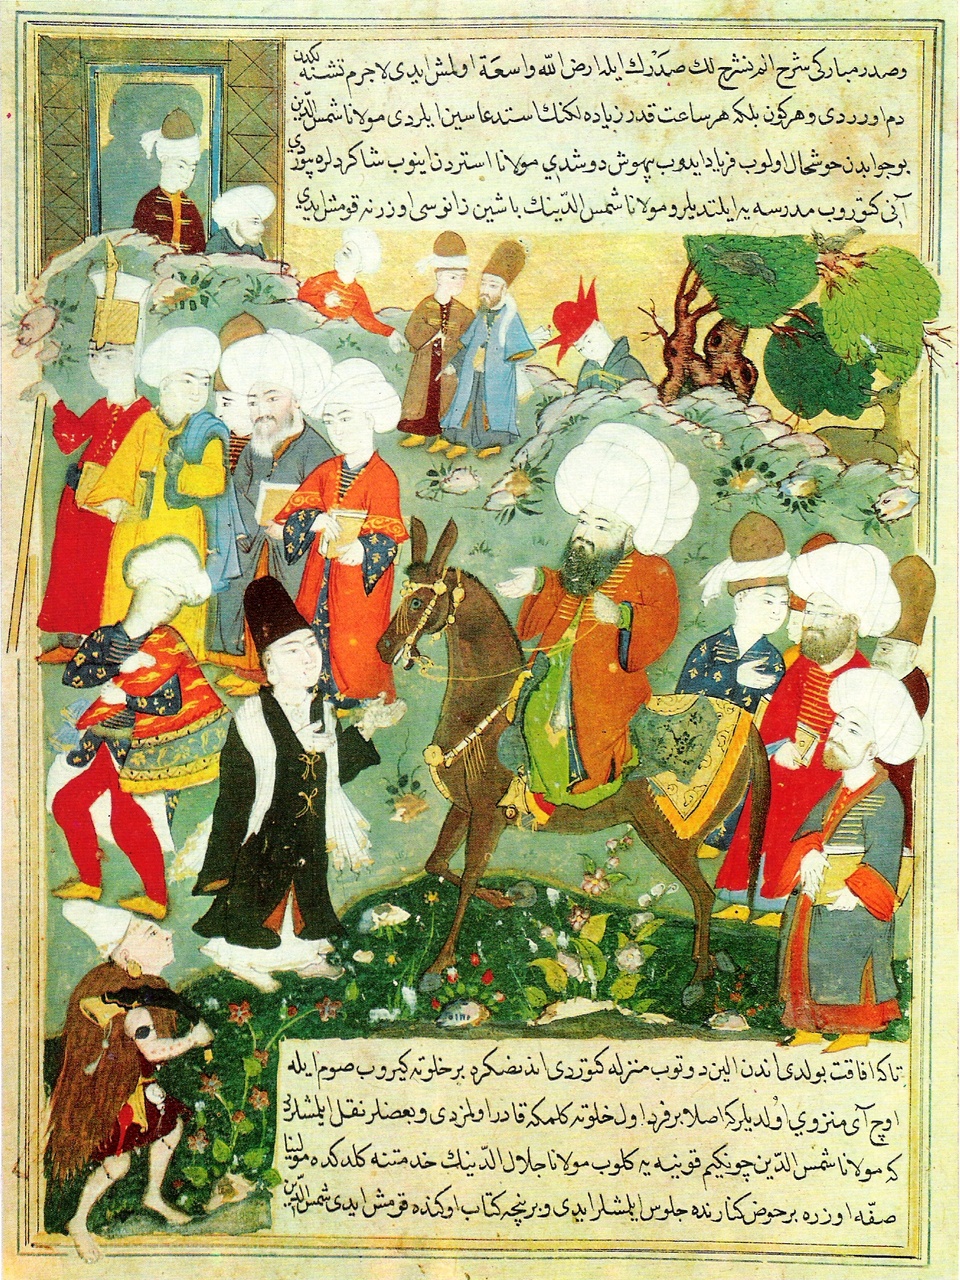 وصدر مباركی شرح الم نشرح لك صدرك ایله ارض الله واسعة اولمش ایدی لاجرم تشنه لكدن
دم اورردی وهركون بلكه هر ساعت قدر زیاده لكنك استدعاسین ایلردی مولانا شمس الدین
بو جوابدن خوشحال اولوب فریاد ایدوب بیهوش دوشدی مولانا استردن اینوب شاكردلره بیوردی
آنی كتوروب مدرسه یه ایلتدیلر و مولانا شمس الدینك باشین زانوسی اوزرنه قومش ایدی
تاكه افاقت بولدی اندن الین دوتوب منزله كتوردی اندنصكره بر خلوته كیروب صوم ایله
اوچ آی منزوی اولدیلر كه اصلا بر فرد اول خلوته كلمكه قادر اولمزدی و بعضلر نقل ایلمشلر
كه مولانا شمس الدین چونكیم قونیه یه كلوب مولانا جلال الدینك خدمتنه كلدكده مولینا
صفه اوزره بر حوض كنارنده جلوس ایلمشلر ایدی و بر نیچه كتاب اوكنده قومش ایدی شمس الدین